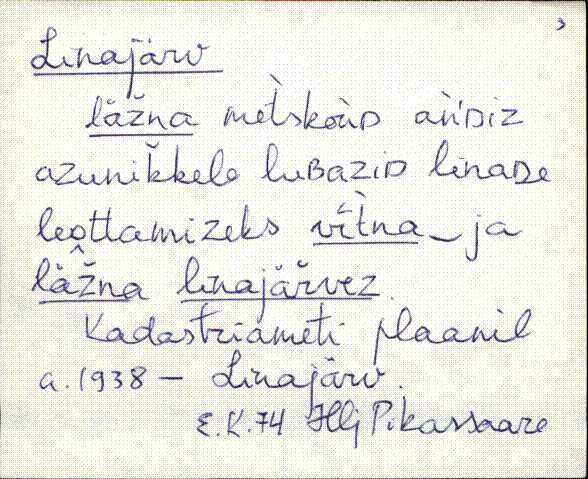 Linajärv
läžna mètskoùD aǹDiz
azunikkele luBaziD linaDe
leottamizeks vìtna ja
läžna linajärvez.
Kadastriameti plaanil
a. 1938 – Linajärv.
E.K. 74 Hlj Pikassaare